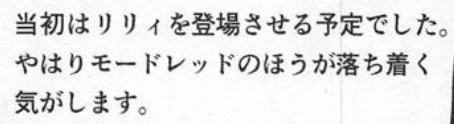 当初はリリィを登場させる予定でした。
やはりモードレッドのほうが落ち着く
気がします。